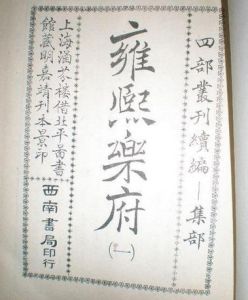 四部叢刊續編—集部
雍熙樂府
(一)
上海涵芬樓借北平圖書
館藏明嘉靖刊本景印
西南書局印行